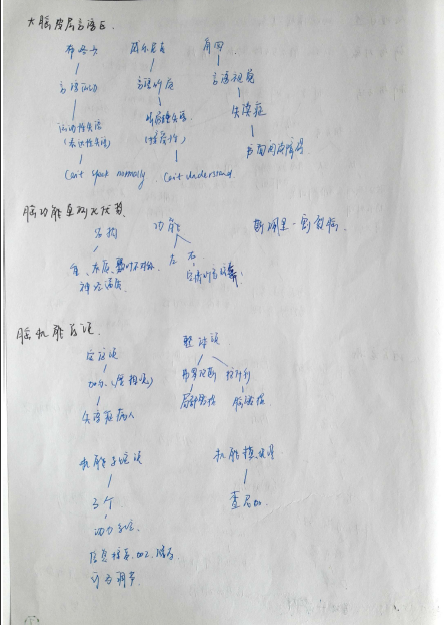 大脑皮层言语区
布洛卡 威尔尼克 角回
言语运动 言语听觉 言语视觉
运动性失语 听觉性失语 失读症
(表达性失语) (接受性) 书面阅读障碍
Can't speak normally Can't understand
脑功能单侧化优势
结构 功能 斯佩里-割裂脑
重、左 右
神经
脑机能学说
定位说 整体说
加尔(颅相学) 弗罗伦斯 拉什利
失语症病人 脑切除
机能系统说 机能模块说
3个
动力系统
信息接受、加工、储存
行为调节